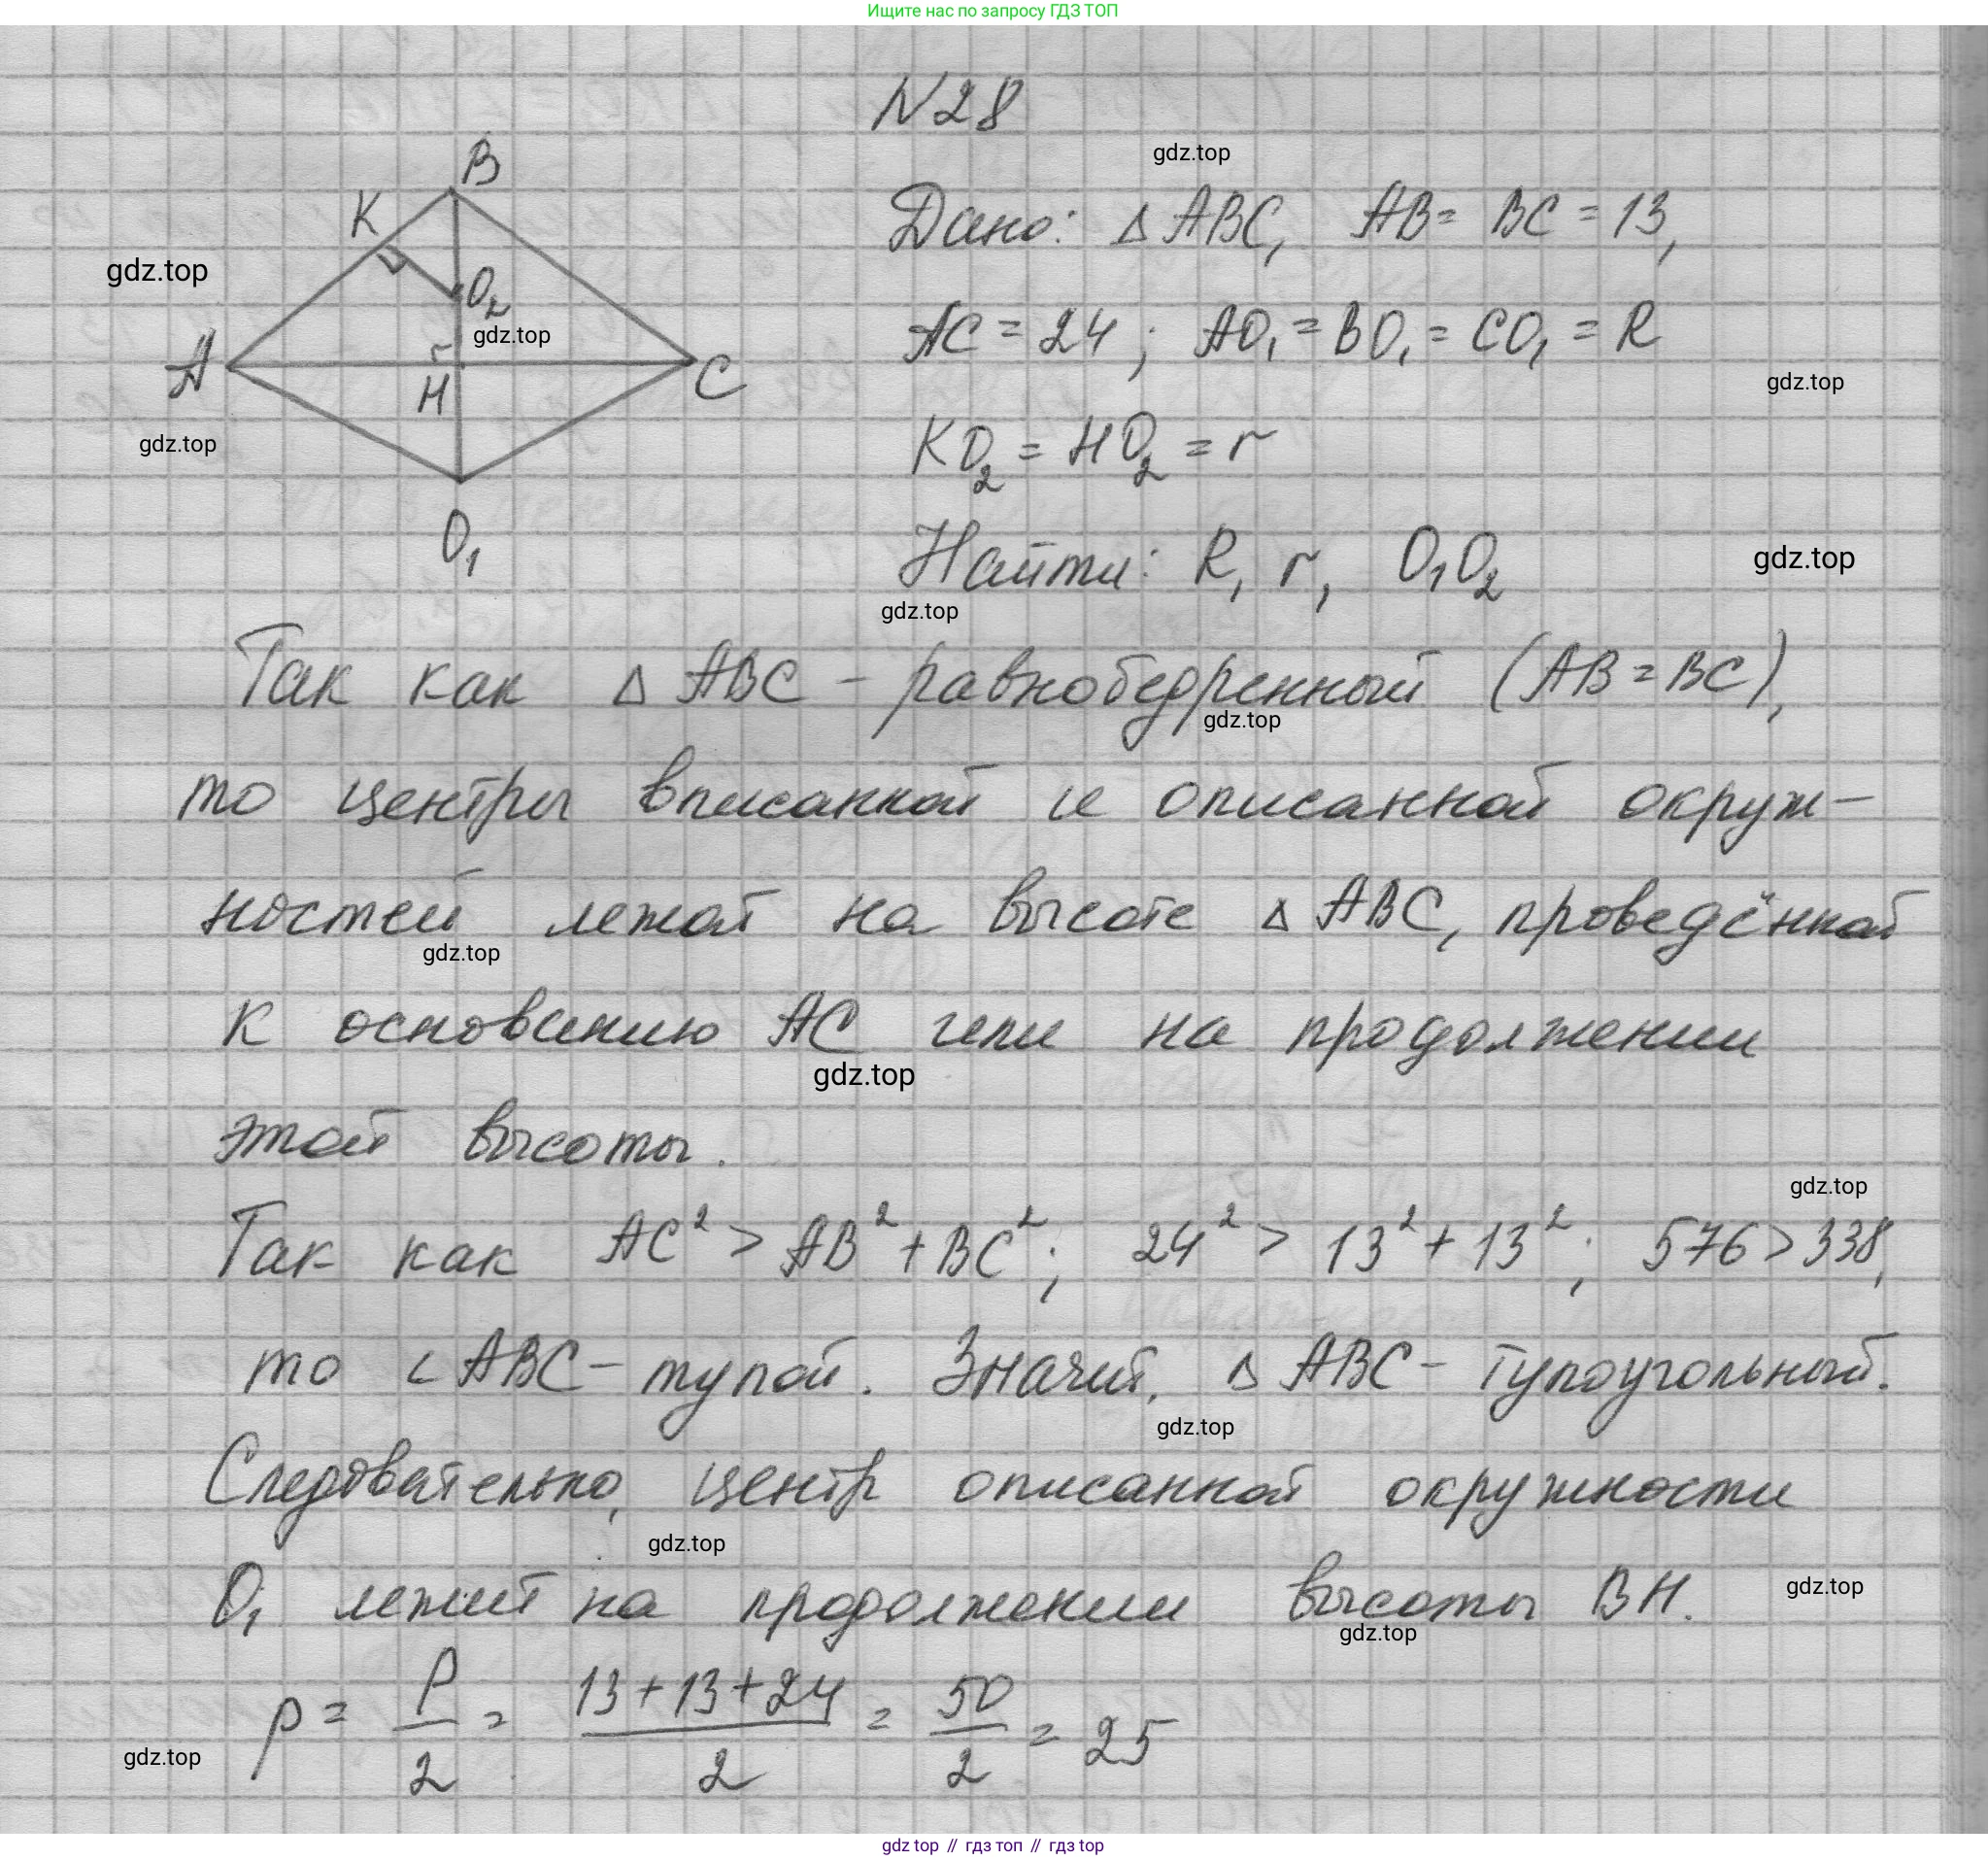 Ищите нас по запросу ГДЗ ТОП
N28
gdz.top
B
K
Дано: △ ABC, AB = BC = 13,
gdz.top
O₂
gdz.top
AC = 24; AO₁ = BO₁ = CO₁ = R
A
H
C
gdz.top
gdz.top
KO₂ = HO₂ = r
O₁
Найти: R, r, O₁O₂
gdz.top
gdz.top
Так как △ ABC – равнобедренный (AB = BC),
gdz.top
то центры вписанной и описанной окруж–
ностей лежат на высоте △ ABC, проведённой
gdz.top
к основанию AC или на продолжении
gdz.top
этой высоты.
gdz.top
Так как AC² > AB² + BC²; 24² > 13² + 13²; 576 > 338,
то ∠ ABC – тупой. Значит, △ ABC – тупоугольный.
gdz.top
Следовательно, центр описанной окружности
gdz.top
O₁ лежит на продолжении высоты BH.
gdz.top
gdz.top
p = P/2 = (13 + 13 + 24)/2 = 50/2 = 25
gdz.top
gdz top // гдз топ // gdz top